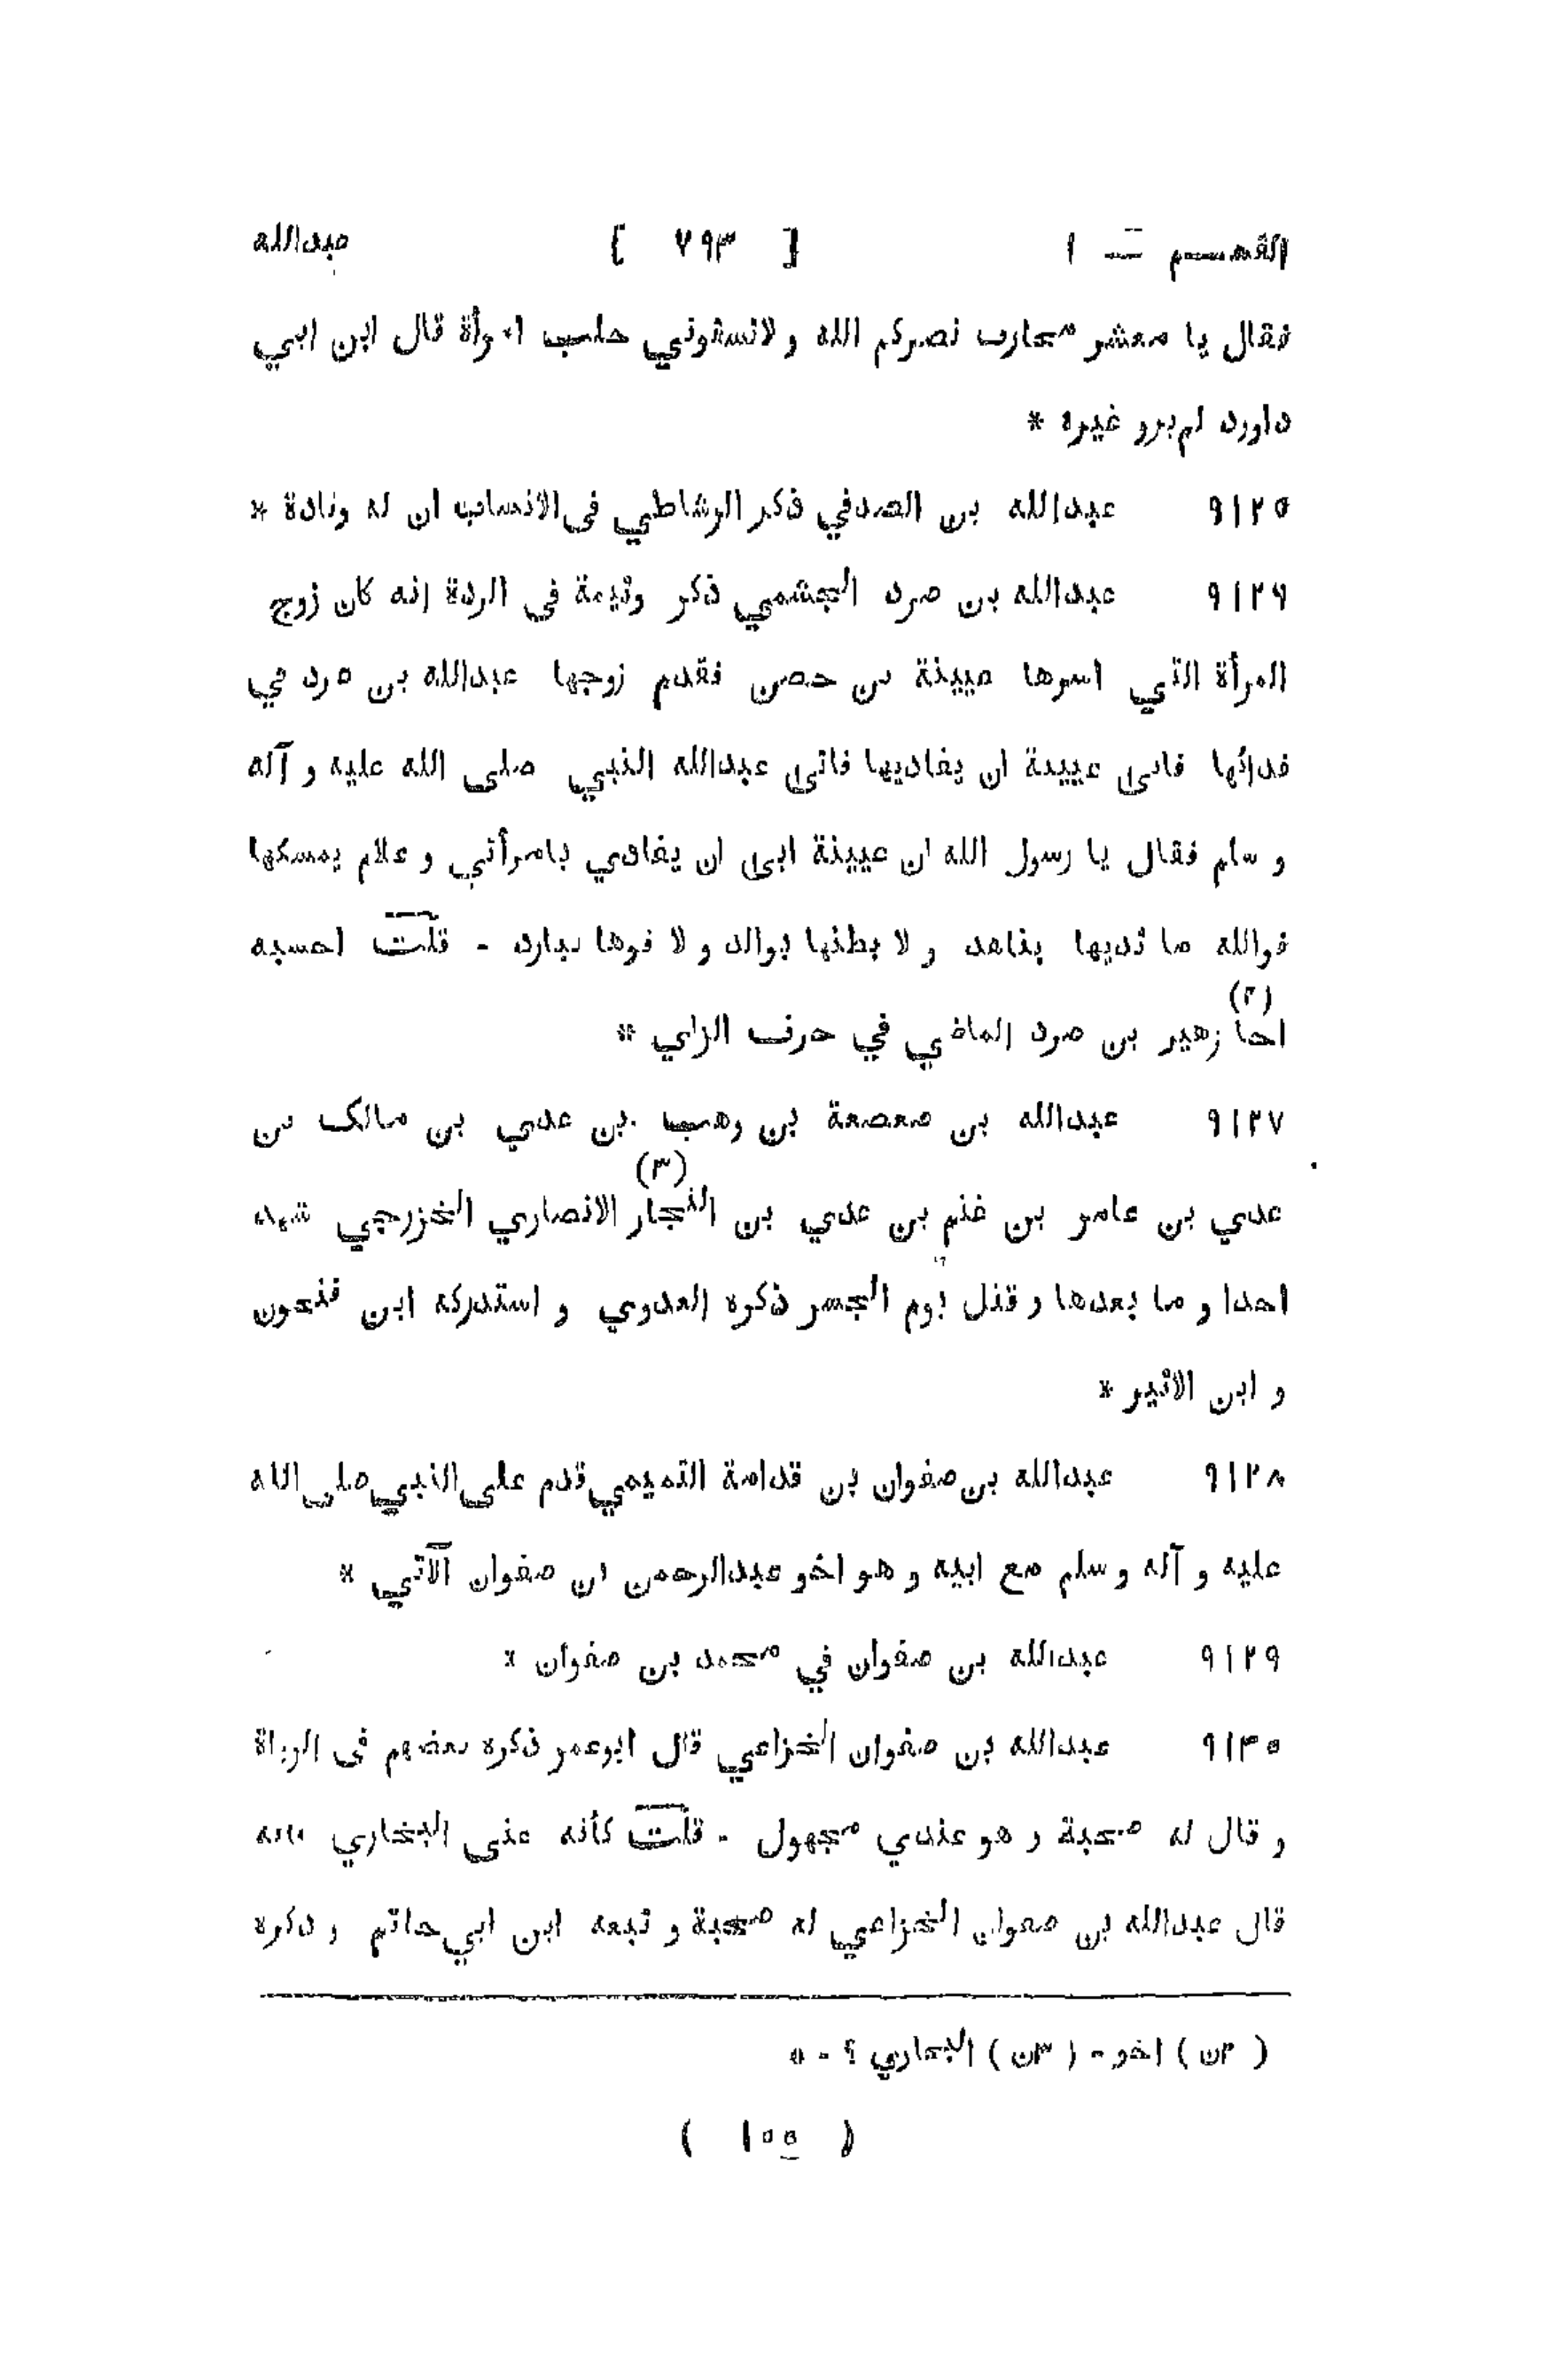 القســـم — ١ [ ٧٩٣ ] عبدالله
فقال يا معشر محارب نصركم الله و لاتسقوني حلب امرأة قال ابن ابي
داود لم يرو غيره *
٩١٢٥ عبدالله بن الصدفي ذكر الرشاطي فى الانساب ان له وفادة *
٩١٢٦ عبدالله بن صرد الجشمي ذكر وثيمة في الردة انه كان زوج
المرأة التي اسرها عيينة بن حصن فقدم زوجها عبدالله بن صرد في
فدائها فابى عيينة ان يفاديها فاتى عبدالله النبي صلى الله عليه و آله
و سلم فقال يا رسول الله ان عيينة ابى ان يفادي بامرأتي و علام يمسكها
فوالله ما ثديها بناهد و لا بطنها بوالد و لا فوها ببارد - قلت احسبه
اخا (٢) زهير بن صرد الماضي في حرف الزاي *
٩١٢٧ عبدالله بن صعصعة بن وهب بن عدي بن مالك بن
عدي بن عامر بن غنم بن عدي بن النجار (٣) الانصاري الخزرجي شهد
احدا و ما بعدها و قتل يوم الجسر ذكره العدوي و استدركه ابن فتحون
و ابن الاثير *
٩١٢٨ عبدالله بن صفوان بن قدامة التميمي قدم على النبي صلى الله
عليه و آله و سلم مع ابيه و هو اخو عبدالرحمن بن صفوان الآتي *
٩١٢٩ عبدالله بن صفوان في محمد بن صفوان *
٩١٣٠ عبدالله بن صفوان الخزاعي قال ابوعمر ذكره بعضهم فى الرواة
و قال له صحبة و هو عندي مجهول - قلت كأنه عنى البخاري فانه
قال عبدالله بن صفوان الخزاعي له صحبة و تبعه ابن ابي حاتم و ذكره
( ٢ن ) اخو - ( ٣ن ) البخاري ؟ - *
( ١٠٠ )